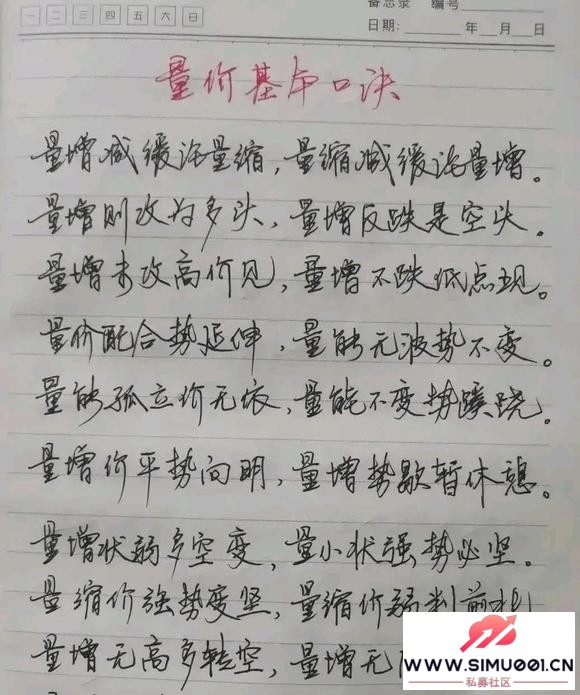 一 二 三 四 五 六 日
备忘录 编号
日期: 年 月 日
量价基本口诀
量增减缓注量缩，量缩减缓注量增。
量增则攻为多头，量增反跌是空头。
量增未攻高价见，量增不跌低点现。
量价配合势延伸，量能无波势不变。
量能孤立价无依，量能不变势蹊跷。
量增价平势向明，量增势歇暂休憩。
量增状弱多空变，量小状强势必坚。
量缩价强势变坚，量缩价弱判前
量增无高多转空，量增无
WWW.SIMU001.CN
私募社区